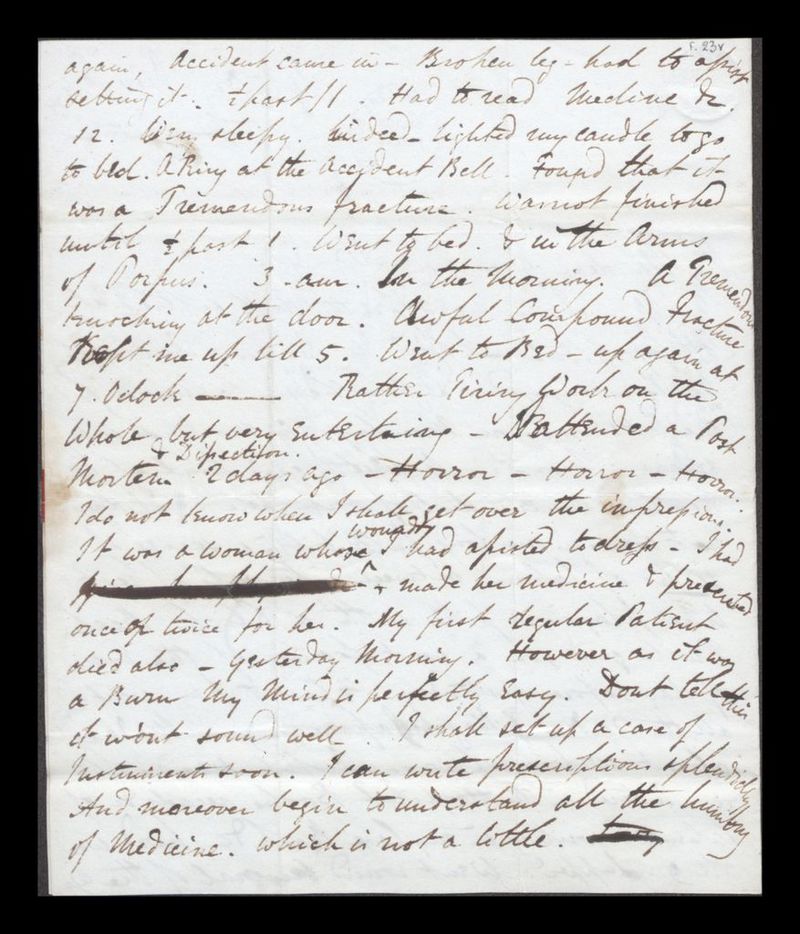 f. 23v
again, Accident came in - Broken leg - had to assist
setting it. ½ past 11. Had to read Medicine &c.
12. Very sleepy. indeed - lighted my candle to go
to bed. A Ring at the Accident Bell. Found that it
was a Tremendous fracture. Was not finished
until ½ past 1. Went to bed. & in the Arms
of Porpus. 3 - am. In the Morning. A Tremendous
knocking at the door. Awful Compound Fracture
Kept me up till 5. Went to Bed - up again at
7. Oclock —— Rather Tiring Work on the
Whole but very entertaining - I attended a Post
& Dissection.
Mortem 2 days ago - Horror - Horror - Horror.
I do not know when I shall get over the impression.
It was a woman whose wounds I had assisted to dress - I had
made her medicine & prescribed
once or twice for her. My first regular Patient
died also - Yesterday Morning. However as it was
a Burn My Mind is perfectly Easy. Dont tell this
it wont sound well. I shall set up a case of
Instruments soon. I can write prescriptions splendidly
And moreover begin to understand all the humbug
of Medicine. which is not a little.